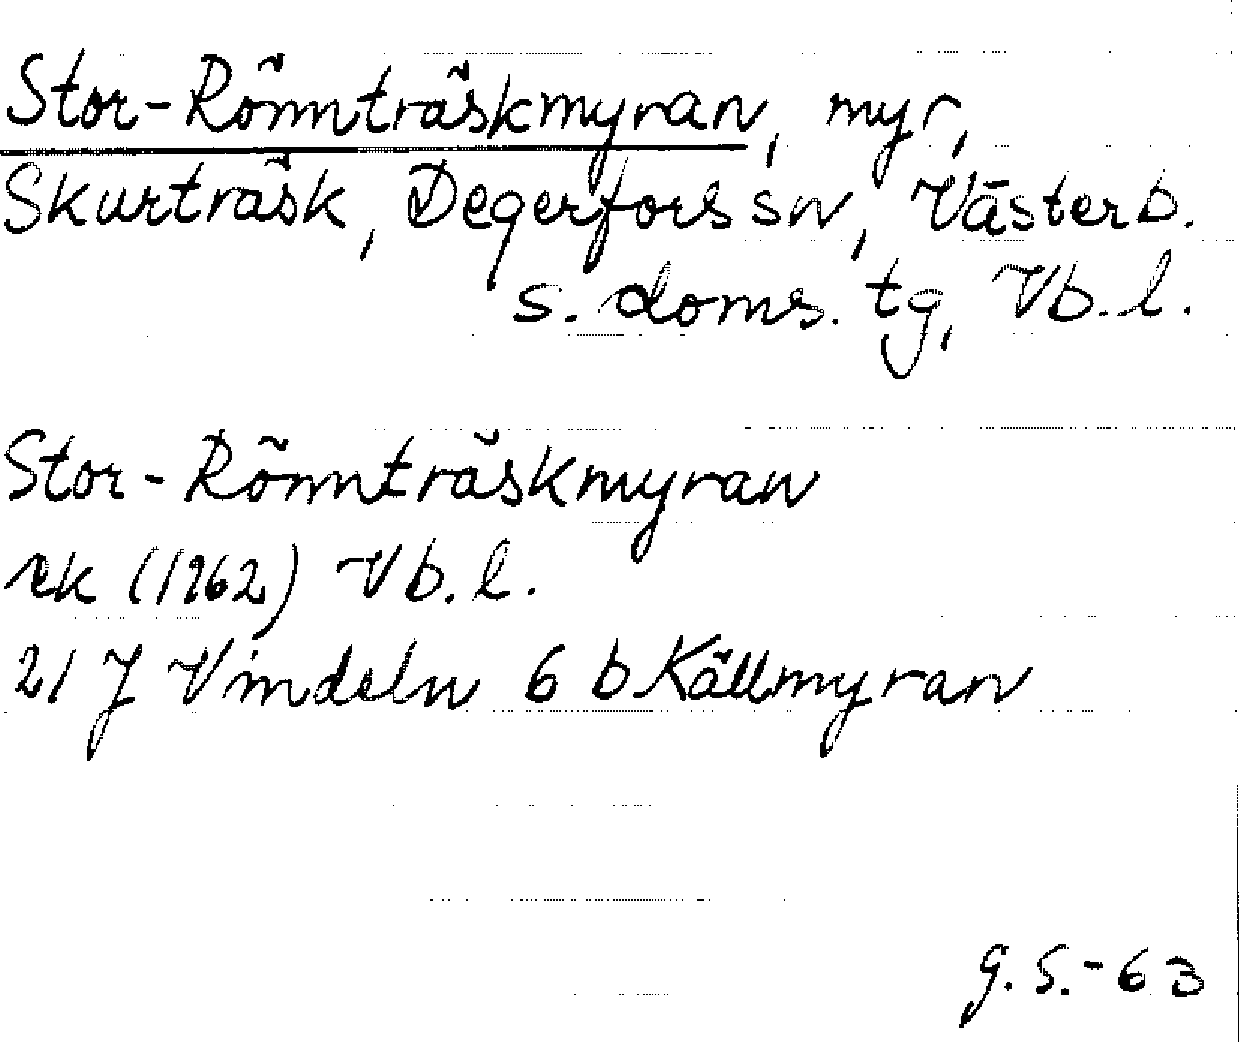 Stor-Rönnträskmyran, myr,
Skurträsk, Degerfors sn, Västerb.
s. doms. tg, Vb. l.
Stor-Rönnträskmyran
rk (1962) Vb. l.
21 J Vindeln 6 b Källmyran
G. S.-63